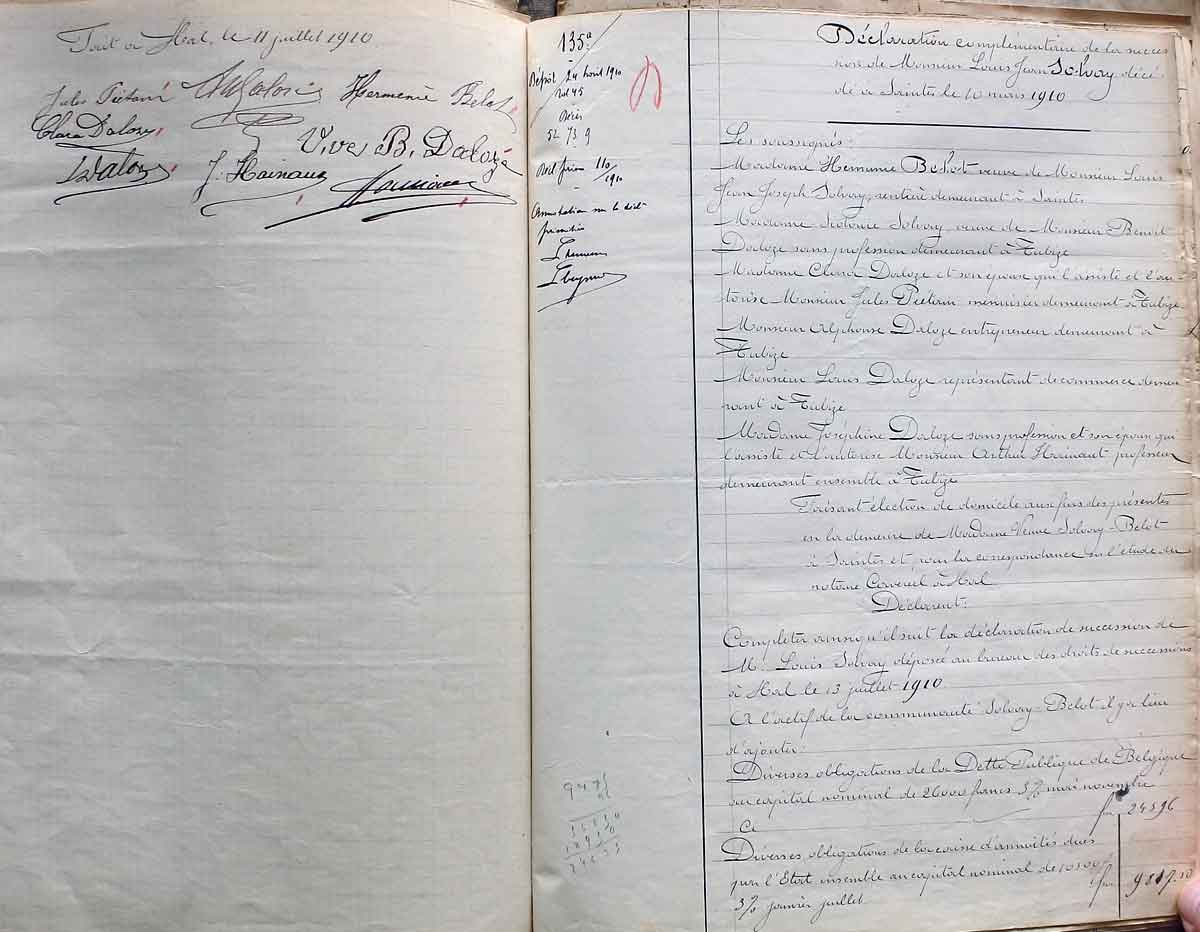 Fait à Hal, le 11 juillet 1910
Jules Piétani Hermenie Belot
Clara Daloze
Vve B. Daloze
LDaloze J. Hainaut
135a
Dépôt 24 août 1910
Vol 45
52 73 9
110/1910
Annotation sur la décl
primitive
Déclaration complémentaire de la succes
sion de Monsieur Louis Jean Solvay, décé
dé à Saintes le 10 mars 1910
Les soussignés:
Madame Hermenie Belot veuve de Monsieur Louis
Jean Joseph Solvay, rentière demeurant à Saintes
Madame Léocadie Solvay, veuve de Monsieur Benoit
Daloze sans profession demeurant à Tubize
Madame Clara Daloze et son époux qui l'assiste et l'au-
torise Monsieur Jules Piétain menuisier demeurant à Tubize
Monsieur Alphonse Daloze entrepreneur demeurant à
Tubize
Monsieur Louis Daloze représentant de commerce demeu
rant à Tubize
Madame Joséphine Daloze sans profession et son époux qui
l'assiste et l'autorise Monsieur Arthur Hainaut professeur
demeurant ensemble à Tubize
Faisant élection de domicile aux fins des présentes
en la demeure de Madame Veuve Solvay-Belot
à Saintes et pour la correspondance en l'étude du
notaire à Hal
Déclarent:
Completer ainsi qu'il suit la déclaration de succession de
Mr Louis Solvay déposée au bureau des droits de successions
à Hal le 13 juillet 1910
A l'actif de la communauté Solvay-Belot il y a lieu
d'ajouter:
Diverses obligations de la Dette Publique de Belgique
au capital nominal de 26000 francs 3% mai novembre
Ci frs 24596
Diverses obligations de la caisse d'annuités dues
par l'Etat ensemble au capital nominal de 10300 f
3% janvier juillet frs